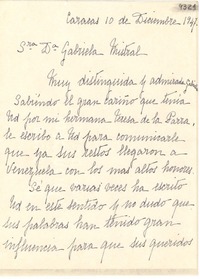 Caracas 10 de Diciembre 1947.
Sra Da Gabriela Mistral
Muy distinguida y admirada
Sabiendo el gran cariño que tenía
Ud por mi hermana Teresa de la Parra,
le escribo a Ud para comunicarle
que ya sus restos llegaron a
Venezuela con los mas altos honores.
Sé que varias veces ha escrito
Ud en este sentido y no dudo que
sus palabras han tenido gran
influencia para que sus queridos